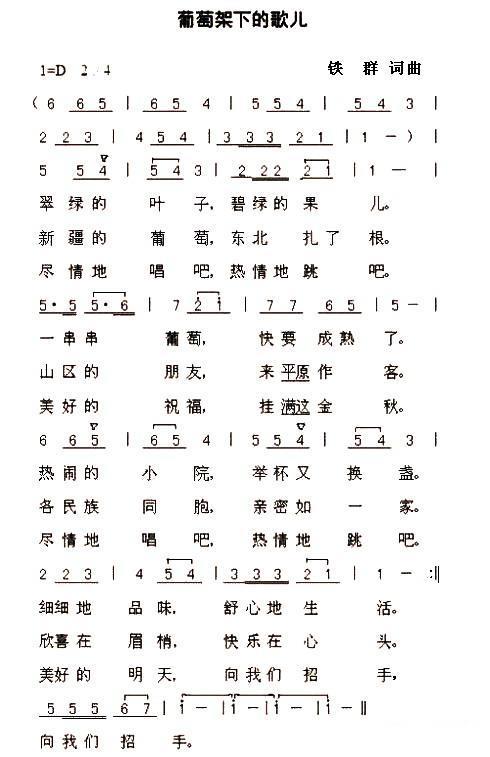 葡萄架下的歌儿
1=D 2/4
铁 群 词曲
( 6 6 5 | 6 5 4 | 5 5 4 | 5 4 3 |
2 2 3 | 4 5 4 | 3 3 3 2 1 | 1 — ) |
5 5 4 | 5 4 3 | 2 2 2 2 1 | 1 — |
翠绿的 叶子, 碧绿的果 儿。
新疆的 葡萄, 东北 扎了 根。
尽情地 唱吧, 热情地跳 吧。
5· 5 5· 6 | 7 2 1 | 7 7 6 5 | 5 — |
一串串 葡萄, 快要 成熟 了。
山区的 朋友, 来平原作 客。
美好的 祝福, 挂满这金 秋。
6 6 5 | 6 5 4 | 5 5 4 | 5 4 3 |
热闹的 小院, 举杯又 换盏。
各民族 同胞, 亲密如 一家。
尽情地 唱吧, 热情地 跳吧。
2 2 3 | 4 5 4 | 3 3 3 2 1 | 1 — :‖
细细地 品味, 舒心地生 活。
欣喜在 眉梢, 快乐在心 头。
美好的 明天, 向我们招 手,
5 5 5 6 7 | i — | i — | i — | i — ‖
向我们 招 手。